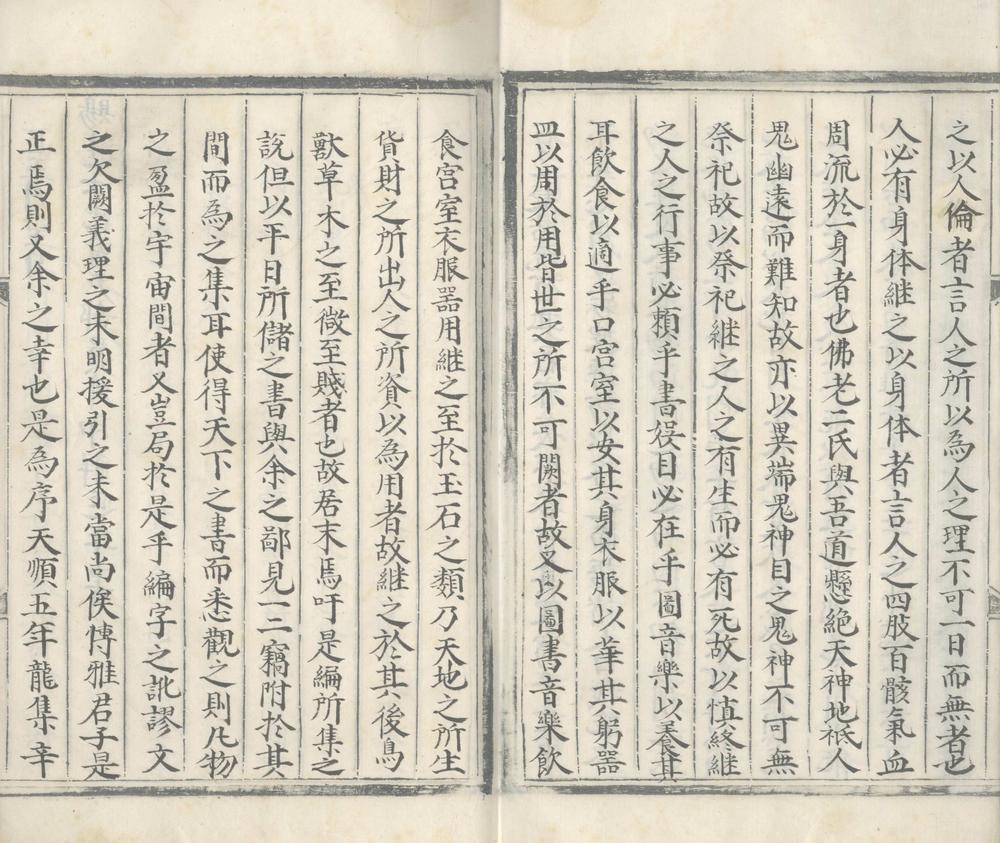 之以人倫者言人之所以為人之理不可一日而無者也
人必有身体継之以身体者言人之四肢百骸氣血
周流於一身者也佛老二氏與吾道懸絶天神地祇人
鬼幽遠而難知故亦以異端鬼神目之鬼神不可無
祭祀故以祭祀継之人之有生而必有死故以慎終継
之人之行事必頼乎書娛目必在乎圖音樂以養其
耳飲食以適乎口宮室以安其身衣服以華其躬器
皿以周於用皆世之所不可闕者故又以圖書音樂飲
食宮室衣服器用継之至於玉石之類乃天地之所生
貨財之所出人之所資以為用者故継之於其後鳥
獸草木之至微至賤者也故居末焉吁是編所集之
說但以平日所儲之書與余之鄙見一二竊附於其
間而為之集耳使得天下之書而悉觀之則凢物
之盈於宇宙間者又豈局於是乎編字之訛謬文
之欠闕義理之未明援引之未當尚俟博雅君子是
正焉則又余之幸也是為序天順五年龍集辛